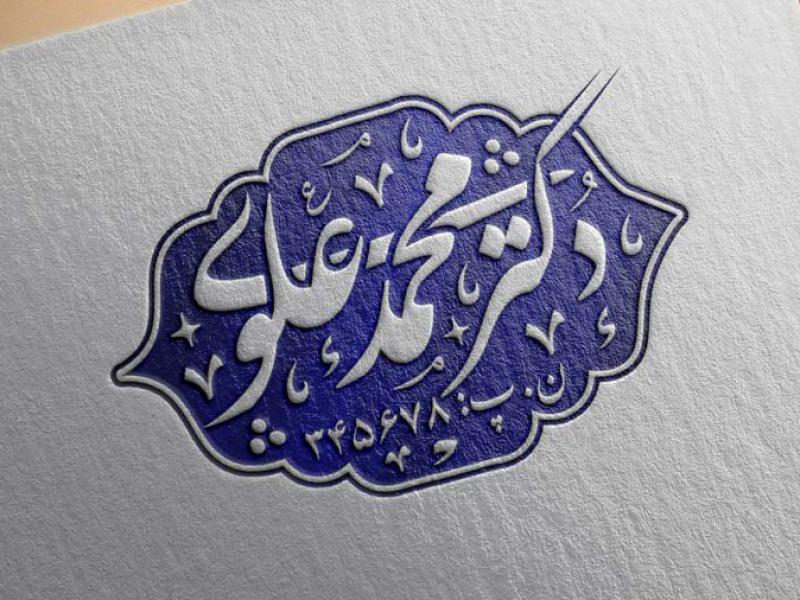 دکتر محمد علوی
ن.پ: ۳۴۵۶۷۸